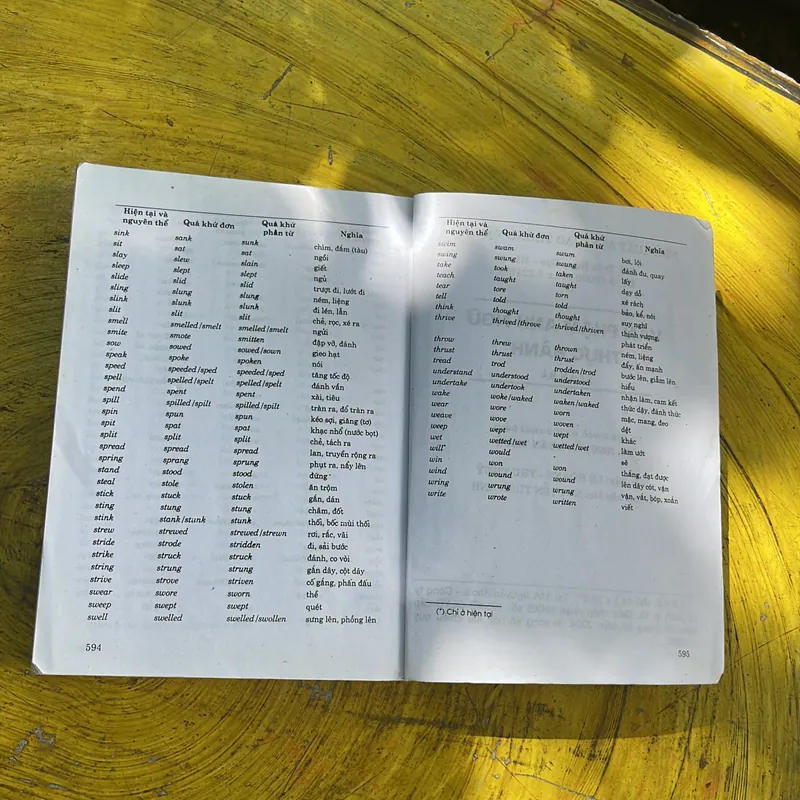 Hiện tại và nguyên thể Quá khứ đơn Quá khứ phân từ Nghĩa
sink sank sunk chìm, đắm (tàu)
sit sat sat ngồi
slay slew slain giết
sleep slept slept ngủ
slide slid slid trượt đi, lướt đi
sling slung slung ném, liệng
slink slunk slunk đi lén, lẩn
slit slit slit chẻ, rọc, xé ra
smell smelled/smelt smelled/smelt ngửi
smite smote smitten đập vỡ, đánh
sow sowed sowed/sown gieo hạt
speak spoke spoken nói
speed speeded/sped speeded/sped tăng tốc độ
spell spelled/spelt spelled/spelt đánh vần
spend spent spent xài, tiêu
spill spilled/spilt spilled/spilt tràn ra, đổ tràn ra
spin spun spun kéo sợi, giăng (tơ)
spit spat spat khạc nhổ (nước bọt)
split split split chẻ, tách ra
spread spread spread lan, truyền rộng ra
spring sprang sprung phụt ra, nẩy lên
stand stood stood đứng
steal stole stolen ăn trộm
stick stuck stuck gắn, dán
sting stung stung châm, đốt
stink stank/stunk stunk thối, bốc mùi thối
strew strewed strewed/strewn rơi, rắc, vãi
stride strode stridden đi, sải bước
strike struck struck đánh, co vòi
string strung strung gắn dây, cột dây
strive strove striven cố gắng, phấn đấu
swear swore sworn thề
sweep swept swept quét
swell swelled swelled/swollen sưng lên, phồng lên
594
Hiện tại và nguyên thể Quá khứ đơn Quá khứ phân từ Nghĩa
swim swam swum bơi, lội
swing swung swung đánh đu, quay
take took taken lấy
teach taught taught dạy dỗ
tear tore torn xé rách
tell told told bảo, kể, nói
think thought thought suy nghĩ
thrive thrived/throve thrived/thriven thịnh vượng,
phát triển
throw threw thrown ném, liệng
thrust thrust thrust đẩy, ấn mạnh
tread trod trodden/trod bước lên, giẫm lên
understand understood understood hiểu
undertake undertook undertaken nhận làm, cam kết
wake woke/waked waken/waked thức dậy, đánh thức
wear wore worn mặc, mang, đeo
weave wove woven dệt
weep wept wept khác
wet wetted/wet wetted/wet làm ướt
will* would sẽ
win won won thắng, đạt được
wind wound wound lên dây cót, vặn
wring wrung wrung vặn, vắt, bóp, xoắn
write wrote written viết
(*) Chỉ ở hiện tại
595